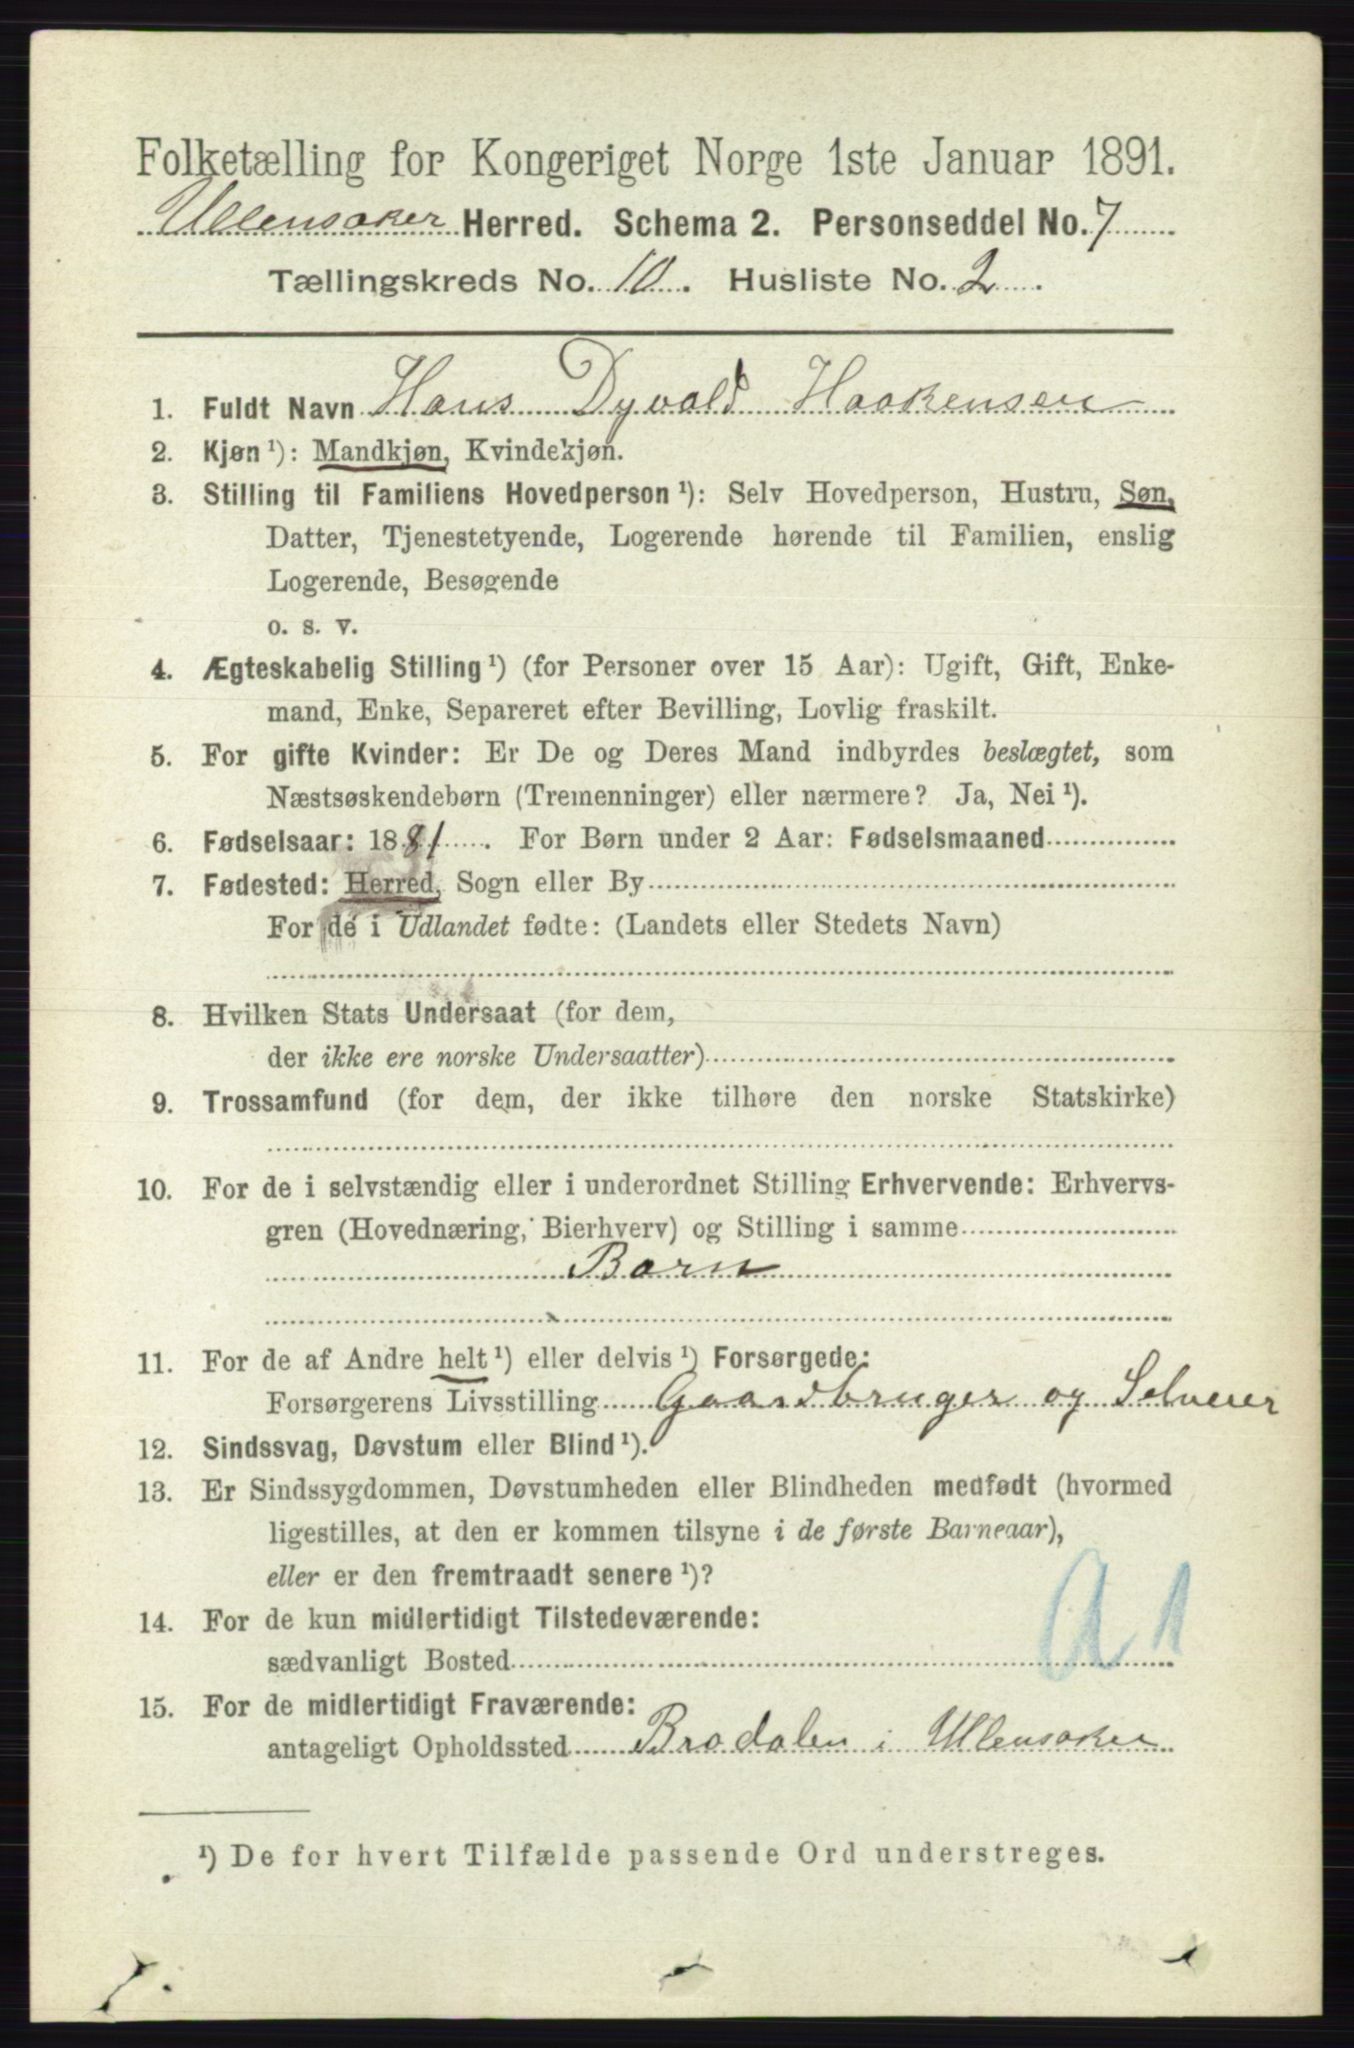 Folketælling for Kongeriget Norge 1ste Januar 1891.
Ullensaker Herred. Schema 2. Personseddel No. 7
Tællingskreds No. 10. Husliste No. 2.
1. Fuldt Navn Hans Dyvald Haakensen
2. Kjøn ¹): Mandkjøn, Kvindekjøn.
3. Stilling til Familiens Hovedperson ¹): Selv Hovedperson, Hustru, Søn,
Datter, Tjenestetyende, Logerende hørende til Familien, enslig
Logerende, Besøgende
o. s. v.
4. Ægteskabelig Stilling ¹) (for Personer over 15 Aar): Ugift, Gift, Enke-
mand, Enke, Separeret efter Bevilling, Lovlig fraskilt.
5. For gifte Kvinder: Er De og Deres Mand indbyrdes beslægtet, som
Næstsøskendebørn (Tremenninger) eller nærmere? Ja, Nei ¹).
6. Fødselsaar: 1881. For Børn under 2 Aar: Fødselsmaaned
7. Fødested: Herred, Sogn eller By
For de i Udlandet fødte: (Landets eller Stedets Navn)
8. Hvilken Stats Undersaat (for dem,
der ikke ere norske Undersaatter)
9. Trossamfund (for dem, der ikke tilhøre den norske Statskirke)
10. For de i selvstændig eller i underordnet Stilling Erhvervende: Erhvervs-
gren (Hovednæring, Bierhverv) og Stilling i samme
Barn
11. For de af Andre helt ¹) eller delvis ¹) Forsørgede:
Forsørgerens Livsstilling Gaardbruger og Selveier
12. Sindssvag, Døvstum eller Blind ¹).
13. Er Sindssygdommen, Døvstumheden eller Blindheden medfødt (hvormed
ligestilles, at den er kommen tilsyne i de første Barneaar),
eller er den fremtraadt senere ¹)?
14. For de kun midlertidigt Tilstedeværende:
sædvanligt Bosted
A 1
15. For de midlertidigt Fraværende:
antageligt Opholdssted Brodalen i Ullensaker
¹) De for hvert Tilfælde passende Ord understreges.